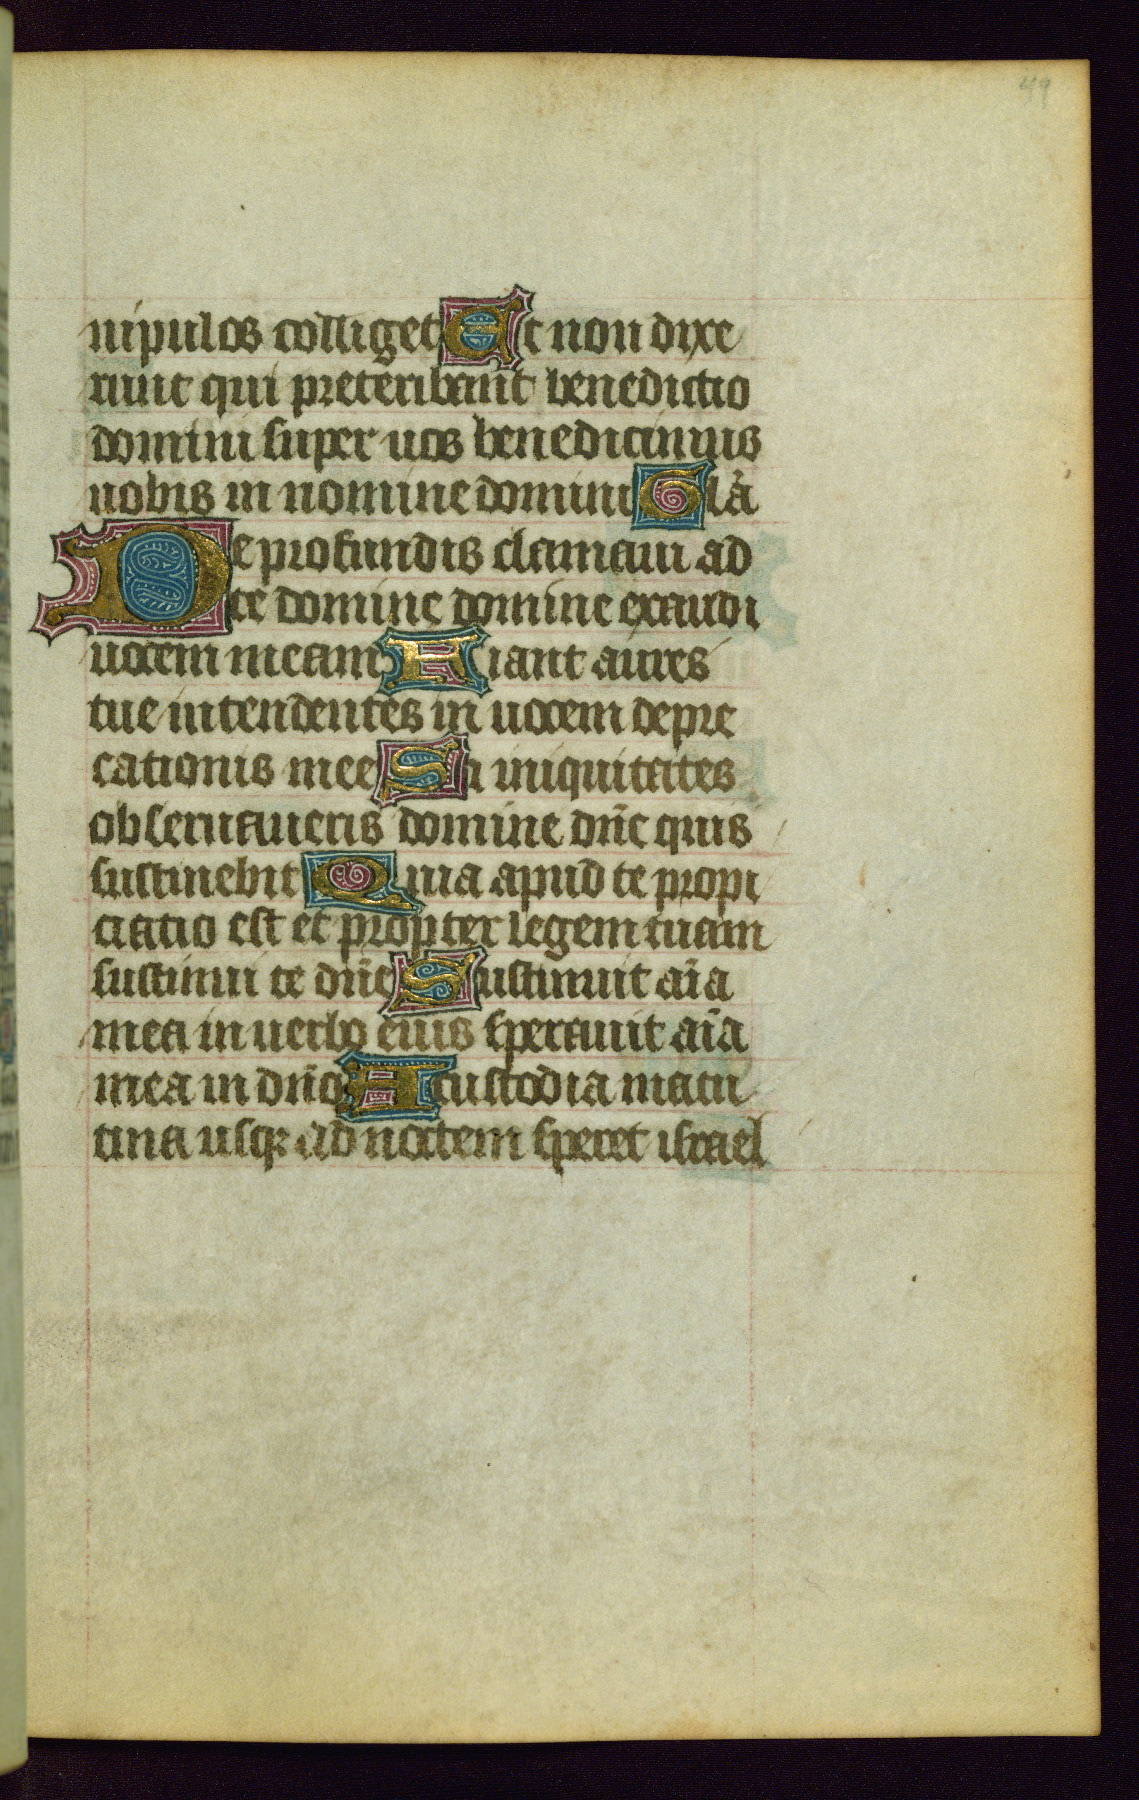 49
nipulos colliget Et non dixe
runt qui preteribant benedictio
domini super uos benediximus
uobis in nomine domini Glã
De profundis clamaui ad
te domine domine exaudi
uocem meam Fiant aures
tue intendentes in uocem depre
cationis mee Si iniquitates
obseruaueris domine dñe quis
sustinebit Quia apud te propi
ciatio est et propter legem tuam
sustinui te dñe Sustinuit aĩa
mea in uerbo eius sperauit aĩa
mea in dño A custodia matu
tina usqꝫ ad noctem speret israel